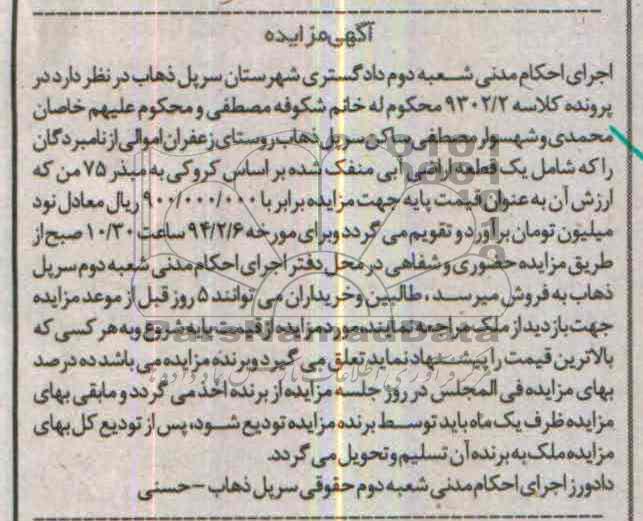 آگهی مزایده
اجرای احکام مدنی شعبه دوم دادگستری شهرستان سرپل ذهاب در نظر دارد در
پرونده کلاسه ۹۳۰۲/۲ محکوم له خانم شکوفه مصطفی و محکوم علیهم خاصان
محمدی و شهسوار مصطفی ساکن سرپل ذهاب روستای زعفران اموالی از نامبردگان
را که شامل یک قطعه اراضی آبی منفک شده بر اساس کروکی به مبذر ۷۵ من که
ارزش آن به عنوان قیمت پایه جهت مزایده برابر با ۹۰۰/۰۰۰/۰۰۰ ریال معادل نود
میلیون تومان برآورد و تقویم می گردد و برای مورخه ۹۴/۲/۶ ساعت ۱۰/۳۰ صبح از
طریق مزایده حضوری و شفاهی در محل دفتر اجرای احکام مدنی شعبه دوم سرپل
ذهاب به فروش میرسد ، طالبین و خریداران می توانند ۵ روز قبل از موعد مزایده
جهت بازدید از ملک مراجعه نمایند، مورد مزایده از قیمت پایه شروع و به هر کسی که
بالاترین قیمت را پیشنهاد نماید تعلق می گیرد و برنده مزایده می باشد ده درصد
بهای مزایده فی المجلس در روز جلسه مزایده از برنده اخذ می گردد و مابقی بهای
مزایده ظرف یک ماه باید توسط برنده مزایده تودیع شود، پس از تودیع کل بهای
مزایده ملک به برنده آن تسلیم و تحویل می گردد.
دادورز اجرای احکام مدنی شعبه دوم حقوقی سرپل ذهاب – حسنی
ParsNamadData